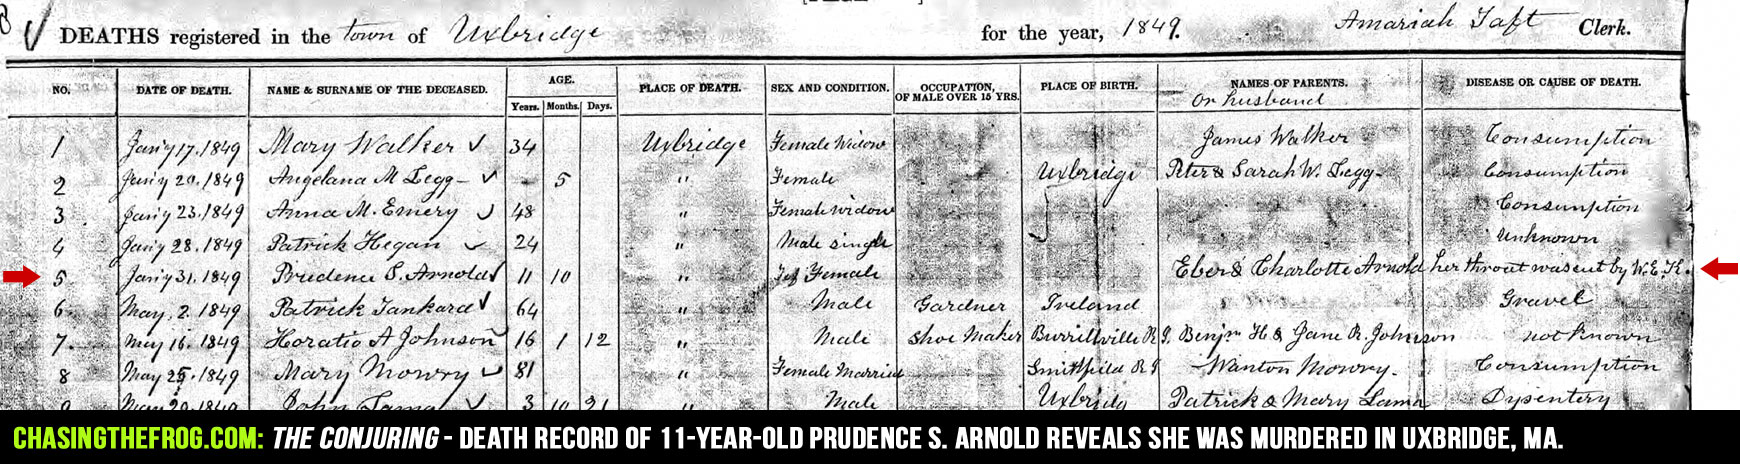 DEATHS registered in the town of Uxbridge for the year, 1849. Amariah Taft Clerk.
NO. DATE OF DEATH. NAME & SURNAME OF THE DECEASED. AGE. PLACE OF DEATH. SEX AND CONDITION. OCCUPATION, OF MALE OVER 15 YRS. PLACE OF BIRTH. NAMES OF PARENTS. DISEASE OR CAUSE OF DEATH.
Years. Months. Days. or husband
1 Jan'y 17. 1849 Mary Walker ✓ 34 Uxbridge Female Widow James Walker Consumption
2 Jan'y 20. 1849 Angelana M Legg - ✓ - 5 " Female Uxbridge Peter & Sarah W. Legg - Consumption
3 Jan'y 23. 1849 Anna M. Emery ✓ 48 " Female widow Consumption
4 Jan'y 28. 1849 Patrick Hegan ✓ 24 " Male single Unknown
5 Jan'y 31. 1849 Prudence S. Arnold ✓ 11 10 " Female Eber & Charlotte Arnold her throat was cut by W. E. K.
6 May. 2. 1849 Patrick Tankard ✓ 64 " Male Gardner Ireland Gravel
7. May 16. 1849 Horatio A Johnson ✓ 16 1 12 " Male Shoe Maker Burrillville R I. Benjn H & Jane R. Johnson not known
8 May 25. 1849 Mary Mowry ✓ 81 " Female Married Smithfield R I Wanton Mowry. Consumption
1849 John ✓ 3 10 21 " Male Uxbridg Patrick & Mary Dysentery
CHASINGTHEFROG.COM: THE CONJURING - DEATH RECORD OF 11-YEAR-OLD PRUDENCE S. ARNOLD REVEALS SHE WAS MURDERED IN UXBRIDGE, MA.